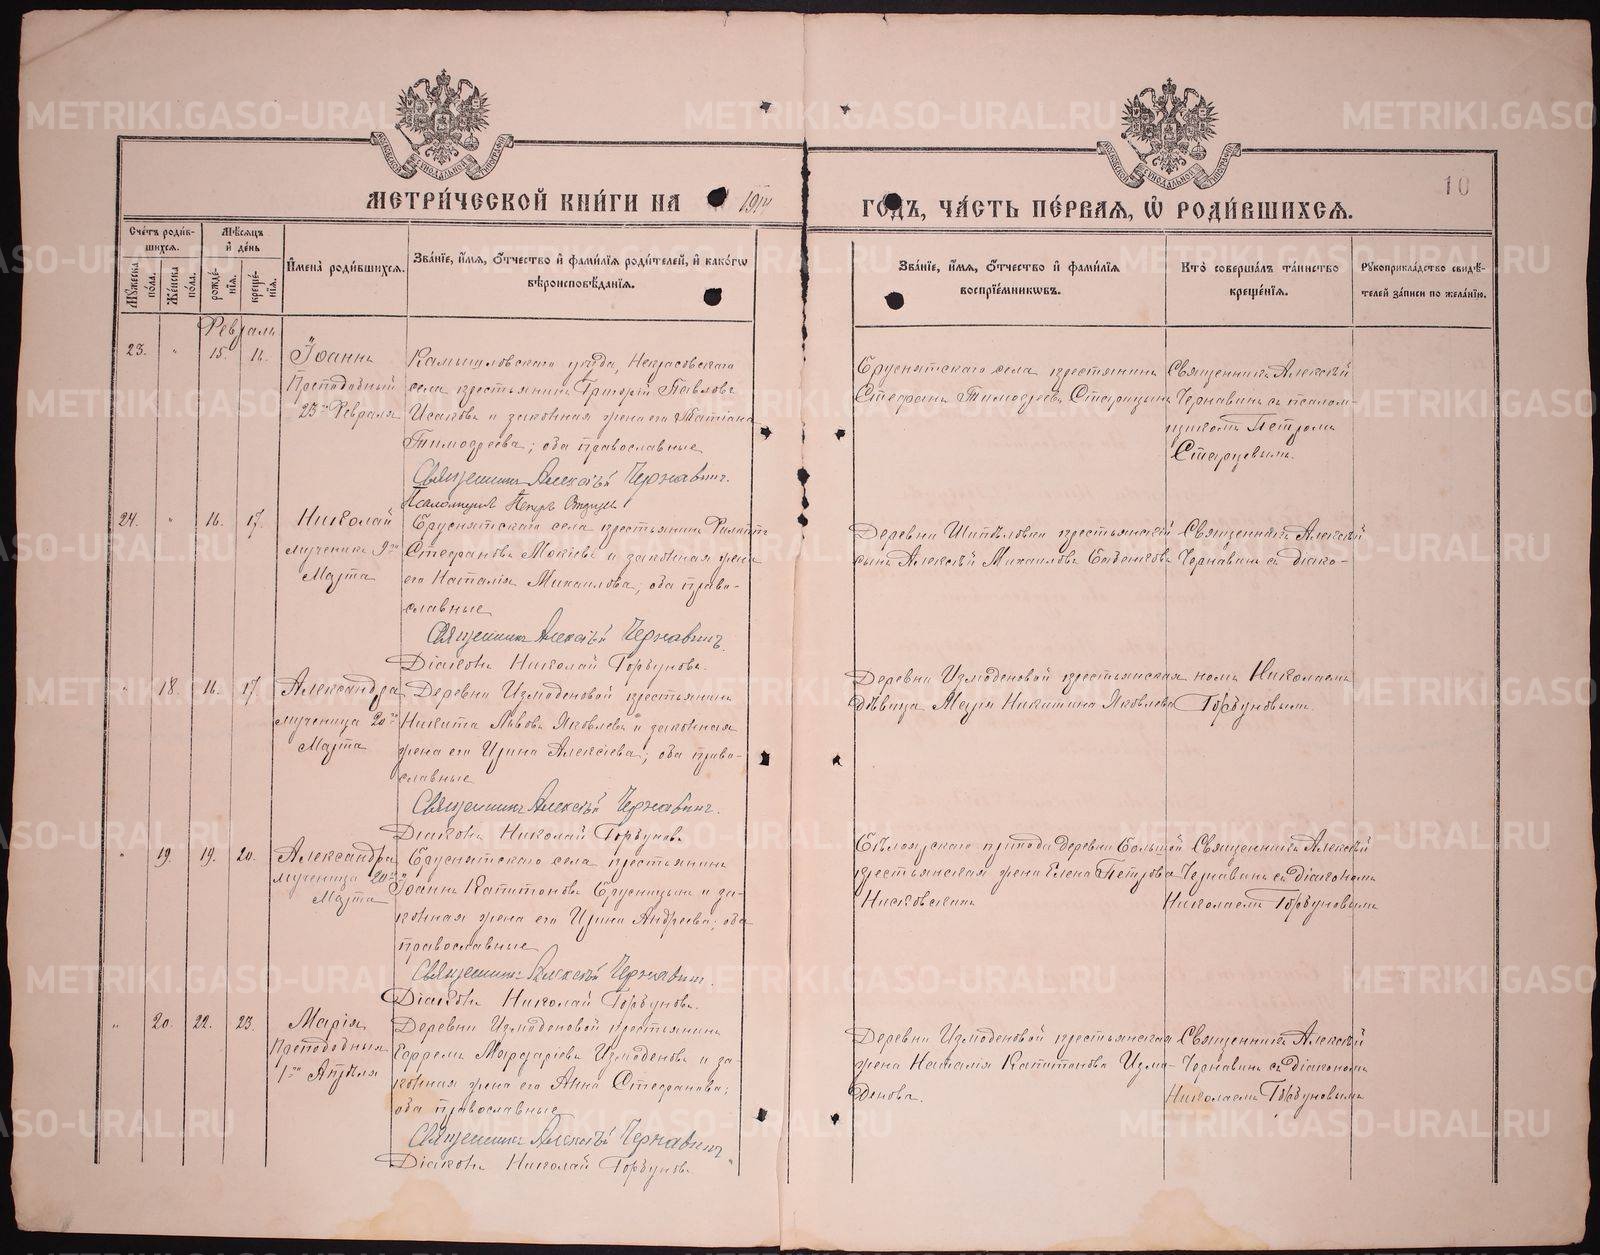 МЕТРИ́ЧЕСКОЙ КНИ́ГИ НА 1914 ГО́ДЪ, ЧА́СТЬ ПЕ́РВАЯ, Ѡ҆ РОДИ́ВШИХСЯ.
10
Сче́тъ роди́вшихся.
Му́жеска по́ла.
Же́нска по́ла.
Мѣ́сяцъ и҆ де́нь
рожде́нїя.
креще́нїя.
И҆мена̀ роди́вшихся.
Зва́нїе, и҆́мя, ѻ҆́тчество и҆ фами́лїя роди́телей, и҆ како́гѡ вѣроисповѣ́данїя.
Зва́нїе, и҆́мя, ѻ҆́тчество и҆ фами́лїя воспрїе́мникѡвъ.
Кто̀ соверша́лъ та́инство креще́нїя.
Рукоприкла́дство свидѣ́телей за́писи по жела́нїю.
Февраль
23. " 15. 16.
Іоаннъ
Преподобный
23го Февраля
Камышловскаго уѣзда, Некрасовскаго
села крестьянинъ Григорій Павловъ
Исаковъ и законная жена его Татiана
Тимофеева; оба православные
Священникъ Алексѣй Чернавинъ.
Псаломщикъ Петръ Старцевъ
Бруснятскаго села крестьянинъ
Стефанъ Тимофеевъ Старицынъ
Священникъ Алексѣй
Чернавинъ съ псалом-
щикомъ Петромъ
Старцевымъ.
24. " 16. 17.
Николай
мученикъ 9го
Марта
Бруснятскаго села крестьянинъ Филиппъ
Стефановъ Мокѣевъ и законная жена
его Наталія Михаилова; оба право-
славные
Священникъ Алексѣй Чернавинъ.
Діаконъ Николай Горбуновъ.
Деревни Шипѣловки крестьянскій
сынъ Алексѣй Михаиловъ
Священникъ Алексѣй
Чернавинъ съ діако-
" 18. 16. 17.
Александра
мученица 20го
Марта
Деревни Измоденовой крестьянинъ
Никита Львовъ Яковлевъ и законная
жена его Ирина Алексѣева; оба право-
славные
Священникъ Алексѣй Чернавинъ.
Діаконъ Николай Горбуновъ
Деревни Измоденовой крестьянская
дѣвица Марія Никитина Яковлева
номъ Николаемъ
Горбуновымъ.
" 19. 19. 20.
Александра
мученица 20го
Марта
Бруснятскаго села крестьянинъ
Іоаннъ Капитоновъ Брусницынъ и за-
конная жена его Ирина Андреева; оба
православные
Священникъ Алексѣй Чернавинъ.
Діаконъ Николай Горбуновъ.
Бѣлоярскаго прихода деревни Большой
крестьянская жена Елена Петрова
Священникъ Алексѣй
Чернавинъ съ діакономъ
Николаемъ Горбуновымъ
" 20. 22. 23.
Марія
Преподобныя
1го Апрѣля
Деревни Измоденовой крестьянинъ
Ефремъ Мардаріевъ Измоденовъ и за-
конная жена его Анна Стефанова;
оба православные
Священникъ Алексѣй Чернавинъ
Діаконъ Николай Горбуновъ.
Деревни Измоденовой крестьянская
жена Наталія Капитонова Измо-
денова.
Священникъ Алексѣй
Чернавинъ съ діакономъ
Николаемъ Горбуновымъ
METRIKI.GASO-URAL.RU